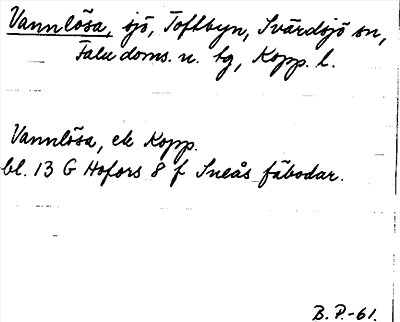 Vannlösa, sjö, Toftbyn, Svärdsjö sn,
Falu doms. n. tg, Kopp. l.
Vannlösa, ek Kopp.
bl. 13 G Hofors 8 f Sneås fäbodar.
B. P.-61.